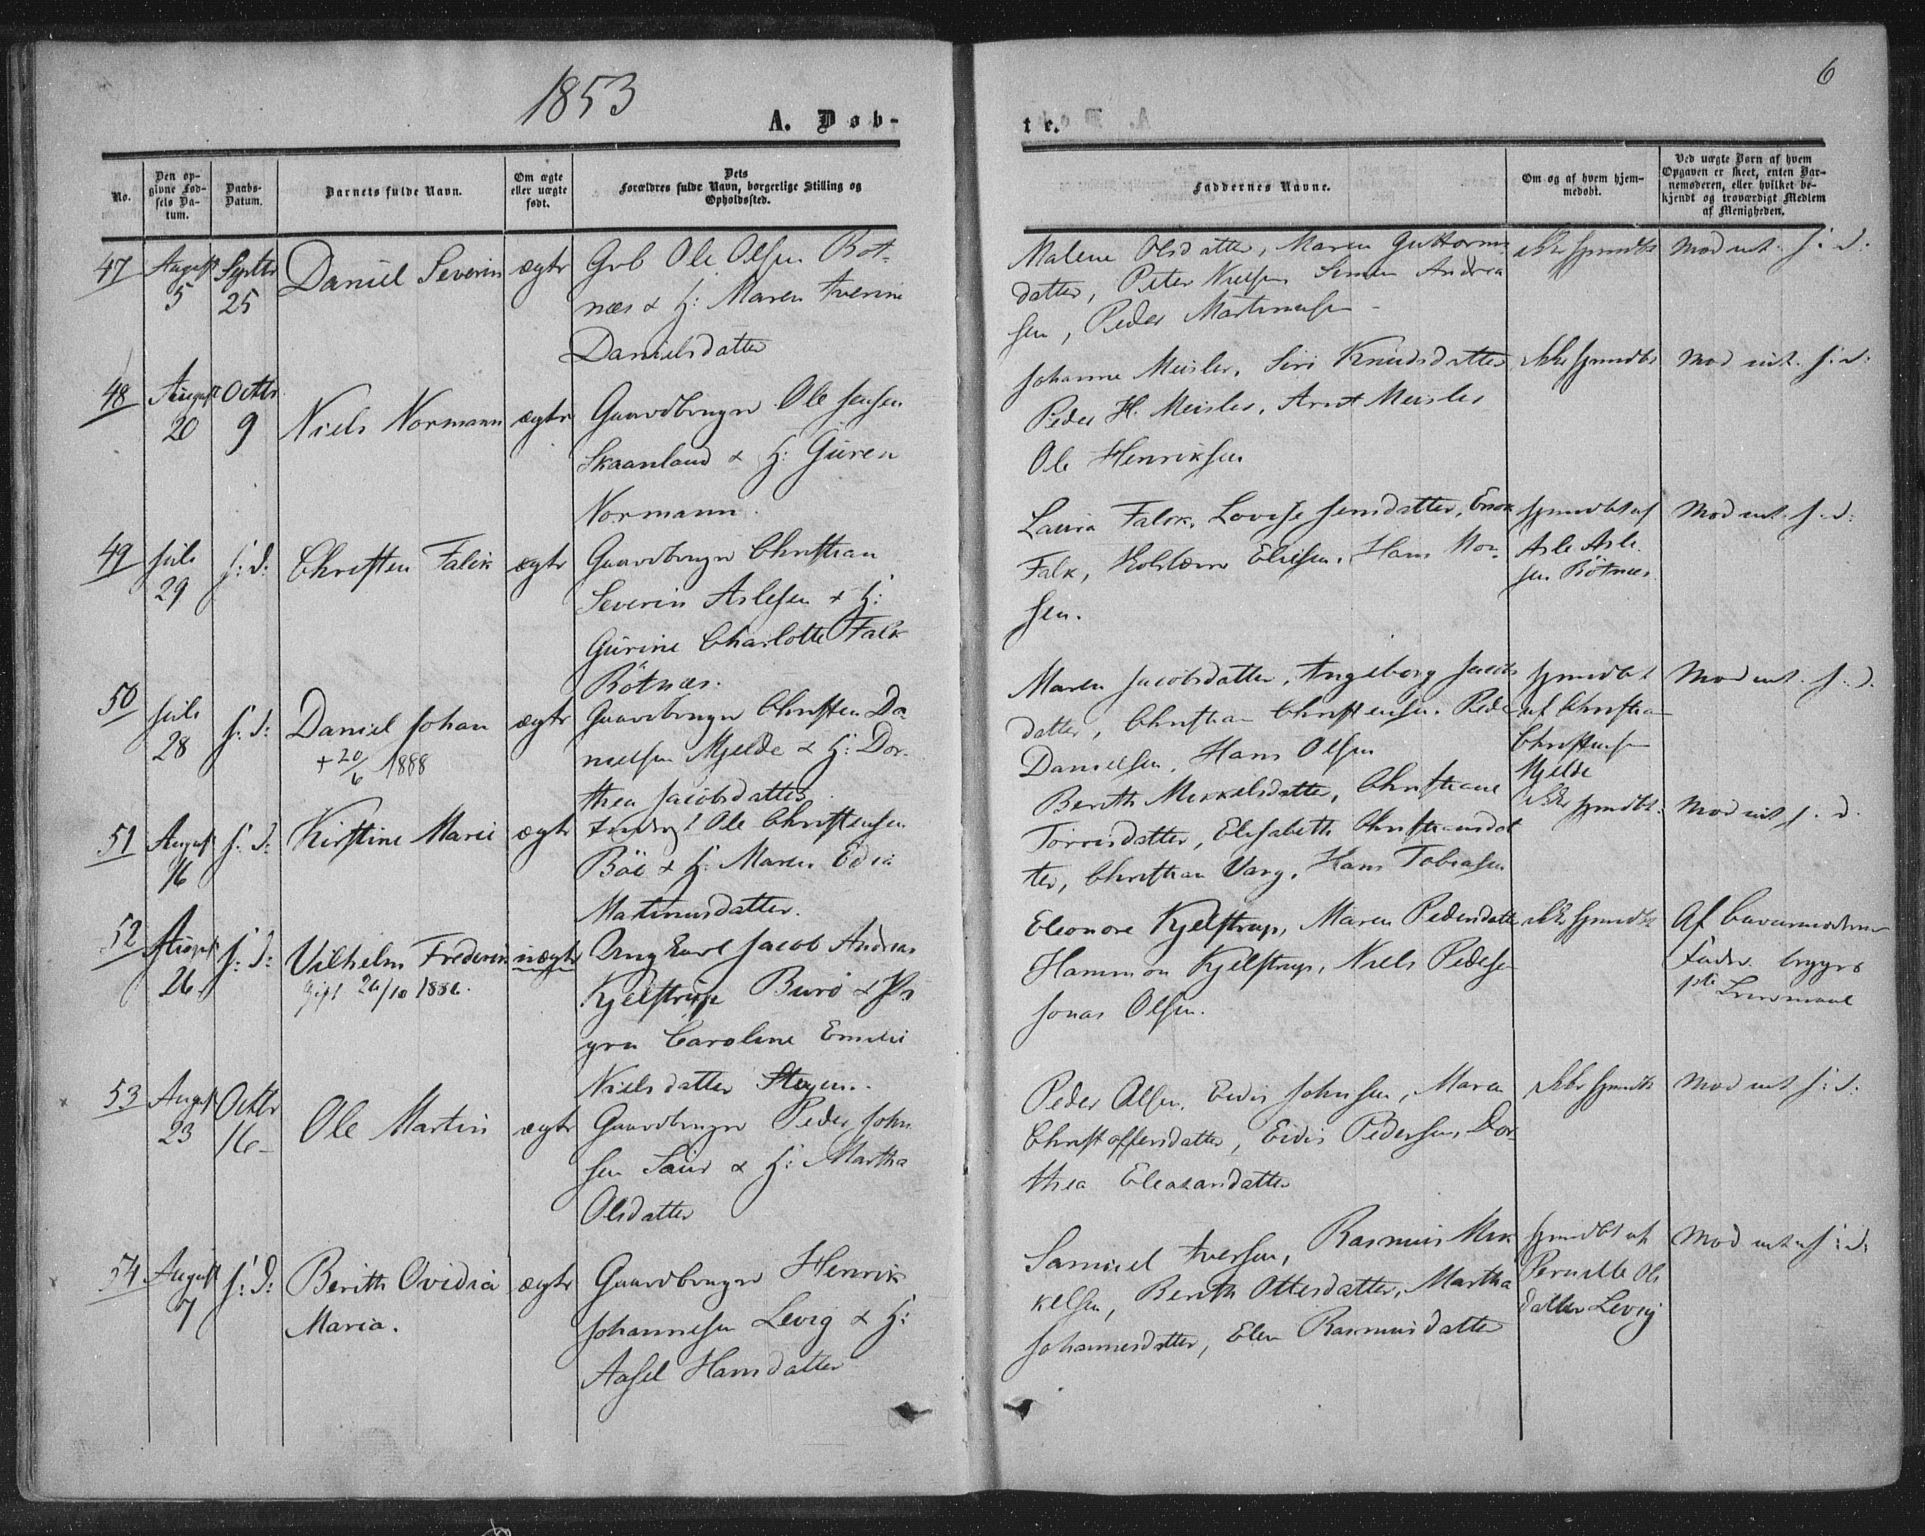 1853
6
A. Døb-
te.
No.
Den op-
givne Fød-
sels Da-
tum.
Daabs-
Datum.
Barnets fulde Navn.
Om ægte
eller uægte
født.
Dets
Forældres fulde Navn, borgerlige Stilling og
Opholdssted.
Faddernes Navne.
Om og af hvem hjem-
medøbt.
Ved uægte Børn af hvem
Opgaven er skeet, enten Bar-
nemoderen, eller hvilket be-
kjendt og troværdigt Medlem
af Menigheden.
47
August
5
Septbr
25
Daniel Severin
ægte
Grb Ole Olsen Bot-
næs & H: Maren Iverine
Danielsdatter
Malene Olsdatter, Maren Guttorms
datter, Peter Nielsen, Simon Andrea
sen, Peder Martinusen
ikke hjemdbt
Mod int. s: d:
48
August
20
Octbr
9
Niels Normann
ægte
Gaardbruger Ole Jensen
Skaanland & H: Guren
Normann.
Johanne Meisler, Siri Knudsdatter
Peder H. Meisler, Arnt Meisler
Ole Henriksen
ikke hjemdbt
Mod int. s: d:
49
Juli
29
s: d:
Christen Falck
ægte
Gaardbruger Christian
Severin Aslesen & H:
Gurine Charlotte Falk
Bötnæs.
Laura Falck, Lovise Jensdatter,
Falk, Elisen, Hans Mon-
sen.
hjemdbt af
Asle Asle-
sen Bötnæs
Mod int. s: d:
50
Juli
28
s: d:
Daniel Johan
+ 20/6 1888
ægte
Gaardbruger Christen Da-
nielsen Mjelde & H: Dor-
thea Jacobsdatter
Maren Jacobsdatter, Ingeborg Jacobs
datter, Christian Christensen, Peder
Danielsen, Hans Olsen
hjemdbt
af Christian
Christensen
Mjelde
Mod int. s: d:
51
August
16
s: d:
Kirstine Marie
ægte
Inderst Ole Christensen
Böe & H: Maren Edia
Martinusdatter.
Berith Mikkelsdatter, Christiane
Torrisdatter, Elisabeth Christiansdat
ter, Christian Varg, Hans Tobiasen
ikke hjemdbt.
Mod int s: d:
52
August
26
s: d:
Vilhelm Frederik
Gift 26/10 1886.
uægte
Ungkarl Jacob Andreas
Kjelstrup Burö & Pi
gen Caroline Emilie
Nielsdatter Steyen.
Eleonore Kjelstrup, Maren Pedersdatter
Hammon Kjelstrup, Niels Pedersen
Jonas Olsen.
ikke hjemdbt
Af Barnemoderen
Fader
53
August
23
Octbr
16
Ole Martin
ægte
Gaardbruger Peder John
sen Saur & H: Martha
Olsdatter
Peder Olsen, Eidis Johnsen, Maren
Christoffersdatter, Eidis Pedersen, Dor-
thea Eleasarsdatter
ikke hjemdbt
Mod int s: d:
54
August
7
s: d:
Berith Ovidia
Maria.
ægte
Gaardbruger Henrik
Johannesen Levig & H:
Aasel Hansdatter
Samuel Iversen, Rasmus Mik
kelsen, Berith Ottersdatter, Martha
Johannesdatter, Elen Rasmusdatter
hjemdbt af
Pernille Ols
datter Levig
Mod int s: d: